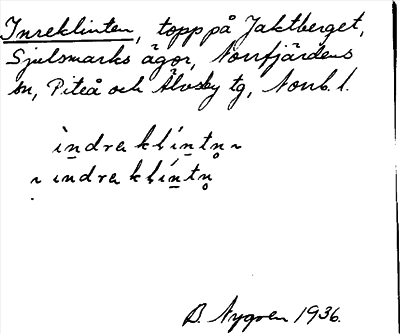 Inreklinten, topp på Jaktberget,
Sjulsmarks ägor, Norrfjärdens
sn, Piteå och Älvsby tg, Norrb. l.
ìndreklíntn̥ ~
~ indreklíntn̥
B. Nygren 1936.